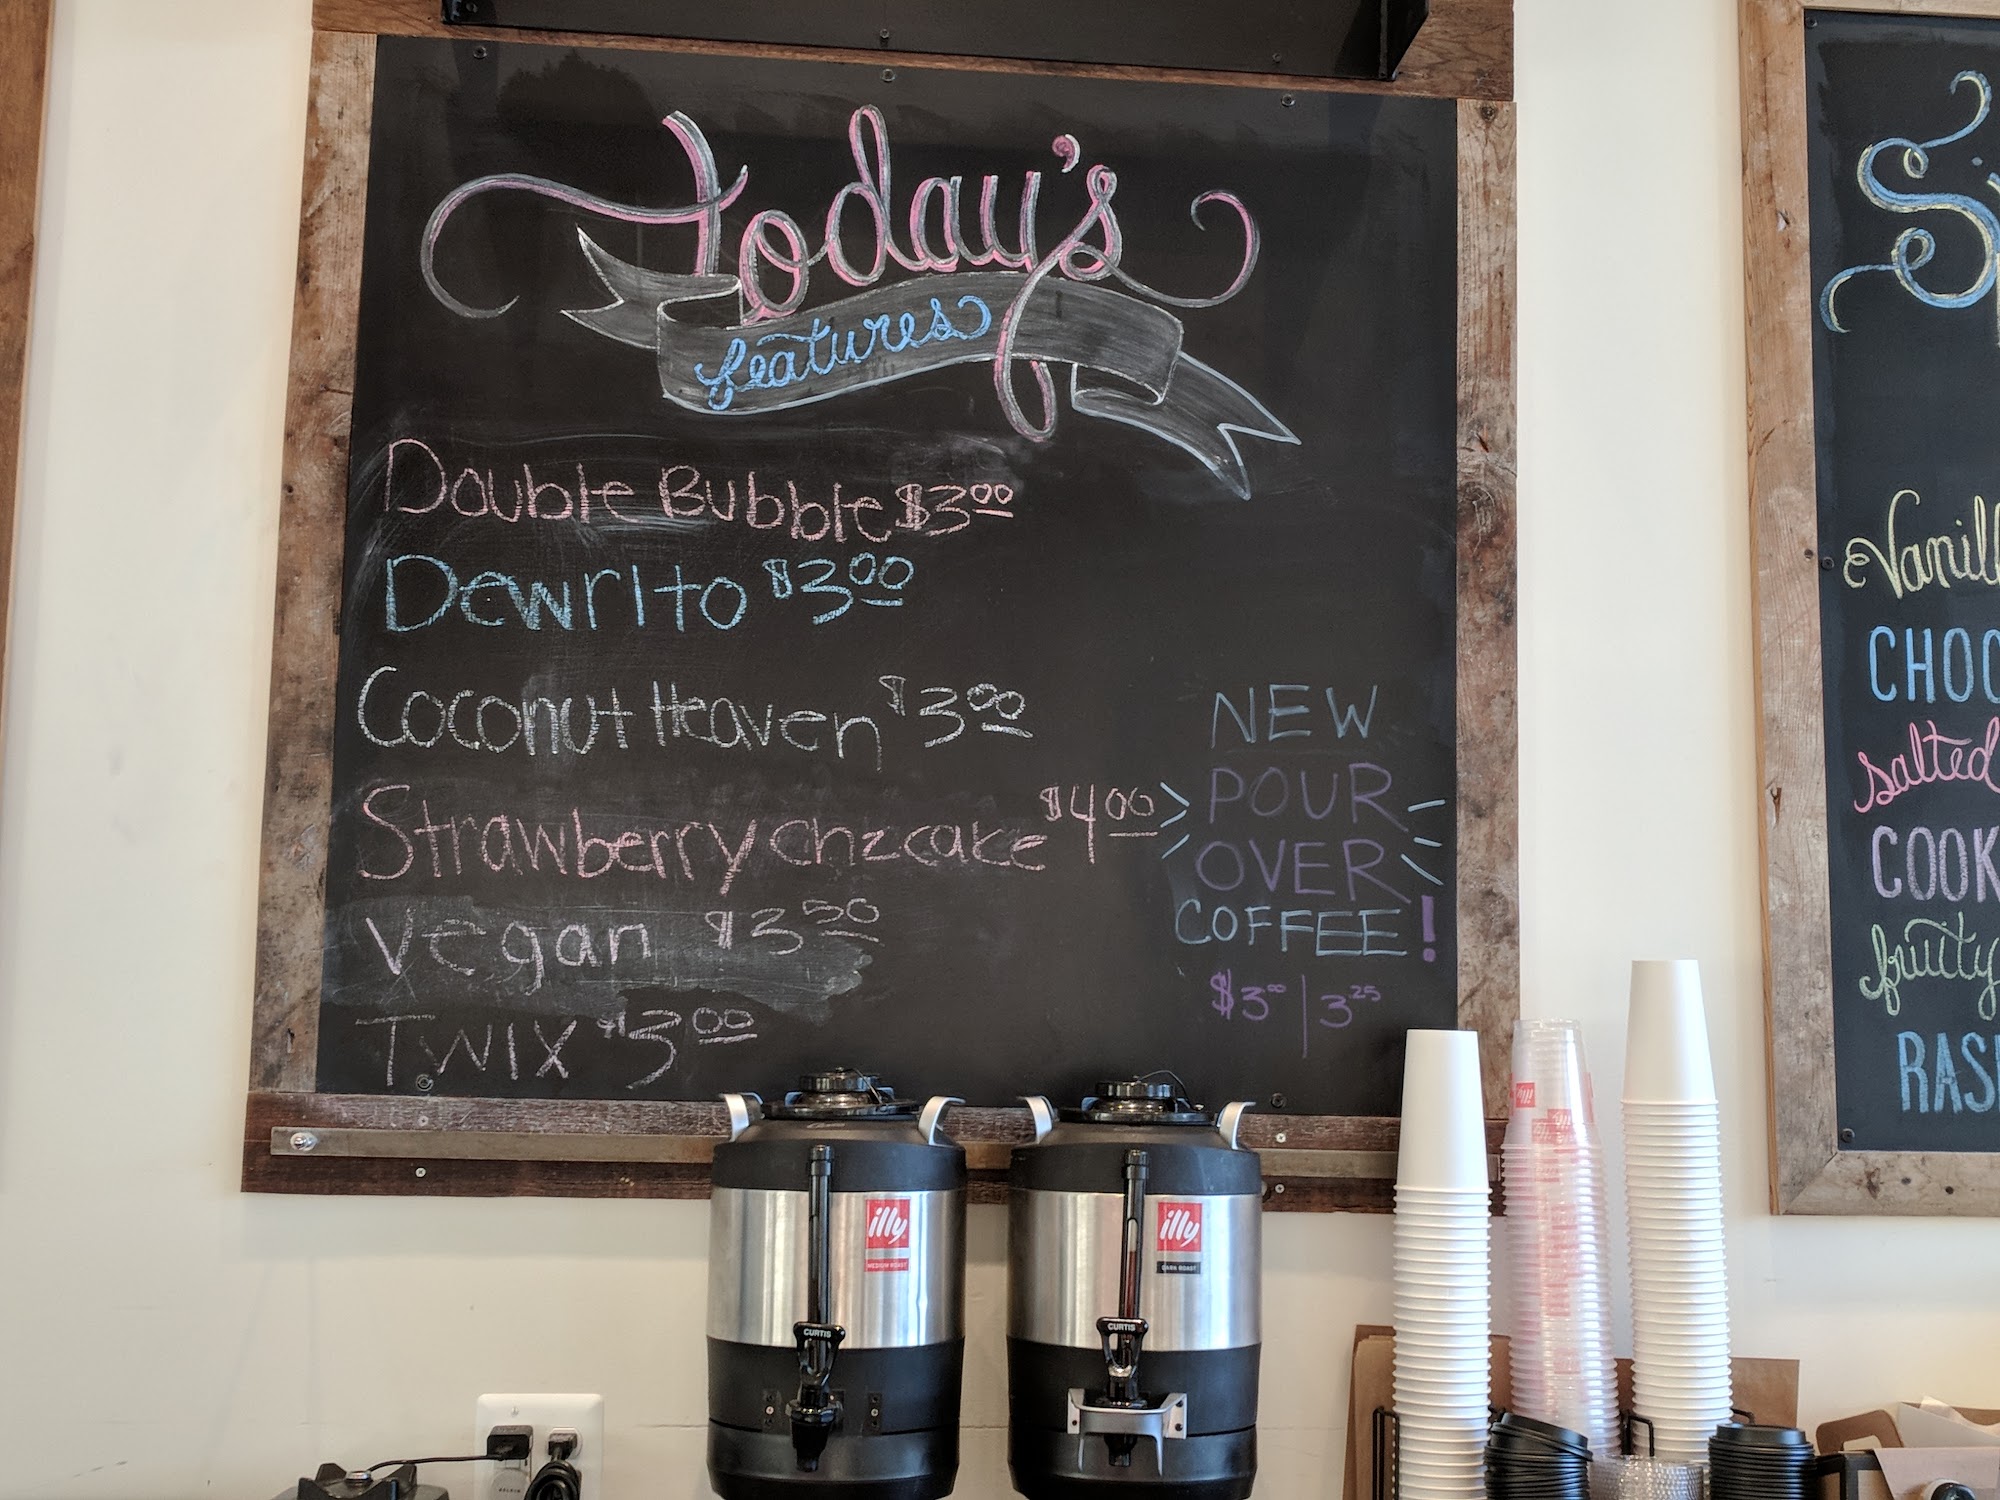 Today's
features
Double Bubble $3.00
Dewrito $3.00
Coconut Heaven $3.00
Strawberry chzcake $4.00
Vegan $3.50
TWIX $3.00
NEW
POUR
OVER
COFFEE!
$3.00 | 3.25
Vanill
CHOC
salted
COOK
fruity
RAS
illy
MEDIUM ROAST
CURTIS
illy
DARK ROAST
CURTIS
illy
BELKIN